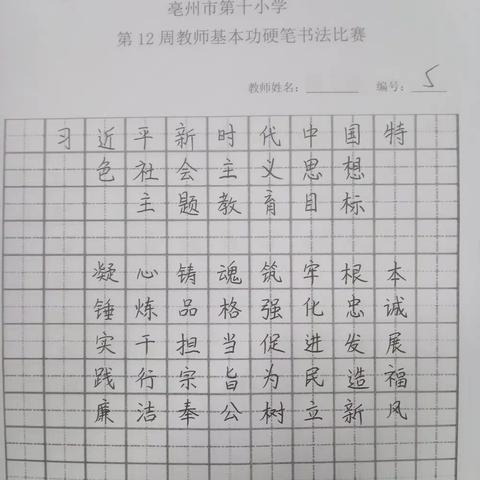 亳州市第十小学
第12周教师基本功硬笔书法比赛
教师姓名：________ 编号：5
习近平新时代中国特
色社会主义思想
主题教育目标
凝心铸魂筑牢根本
锤炼品格强化忠诚
实干担当促进发展
践行宗旨为民造福
廉洁奉公树立新风